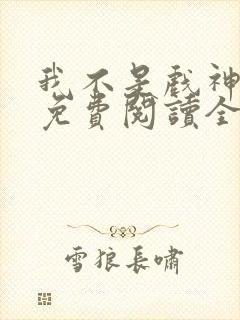 我不是戲神
免費閱讀全
雪狼長嘯